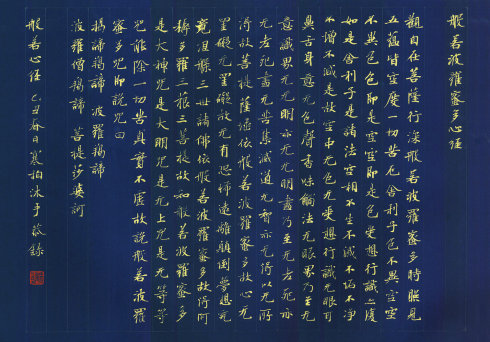 般若波羅蜜多心經
觀自在菩薩行深般若波羅蜜多時照見
五蘊皆空度一切苦厄舍利子色不異空空
不異色色即是空空即是色受想行識亦復
如是舍利子是諸法空相不生不滅不垢不淨
不增不減是故空中无色无受想行識无眼耳
鼻舌身意无色聲香味觸法无眼界乃至无
意識界无无明亦无无明盡乃至无老死亦
无老死盡无苦集滅道无智亦无得以无所
得故菩提薩埵依般若波羅蜜多故心无
罣礙无罣礙故无有恐怖遠離顛倒夢想究
竟涅槃三世諸佛依般若波羅蜜多故得阿
耨多羅三藐三菩提故知般若波羅蜜多
是大神咒是大明咒是无上咒是无等等
咒能除一切苦真實不虛故說般若波羅
蜜多咒即說咒曰
揭諦揭諦 波羅揭諦
波羅僧揭諦 菩提莎婆訶
般若心經 乙丑春日 沐手敬錄